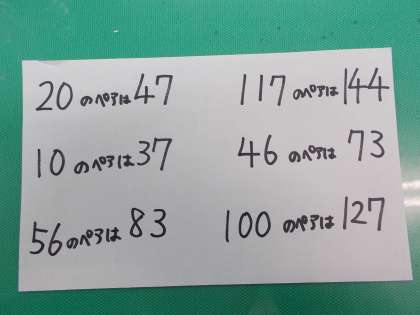 20のペアは47
10のペアは37
56のペアは83
117のペアは144
46のペアは73
100のペアは127